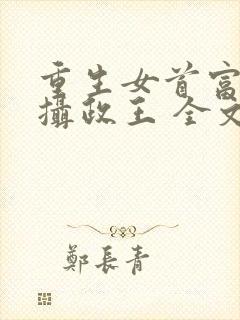 重生女首富
攝政王 全文
鄭長青